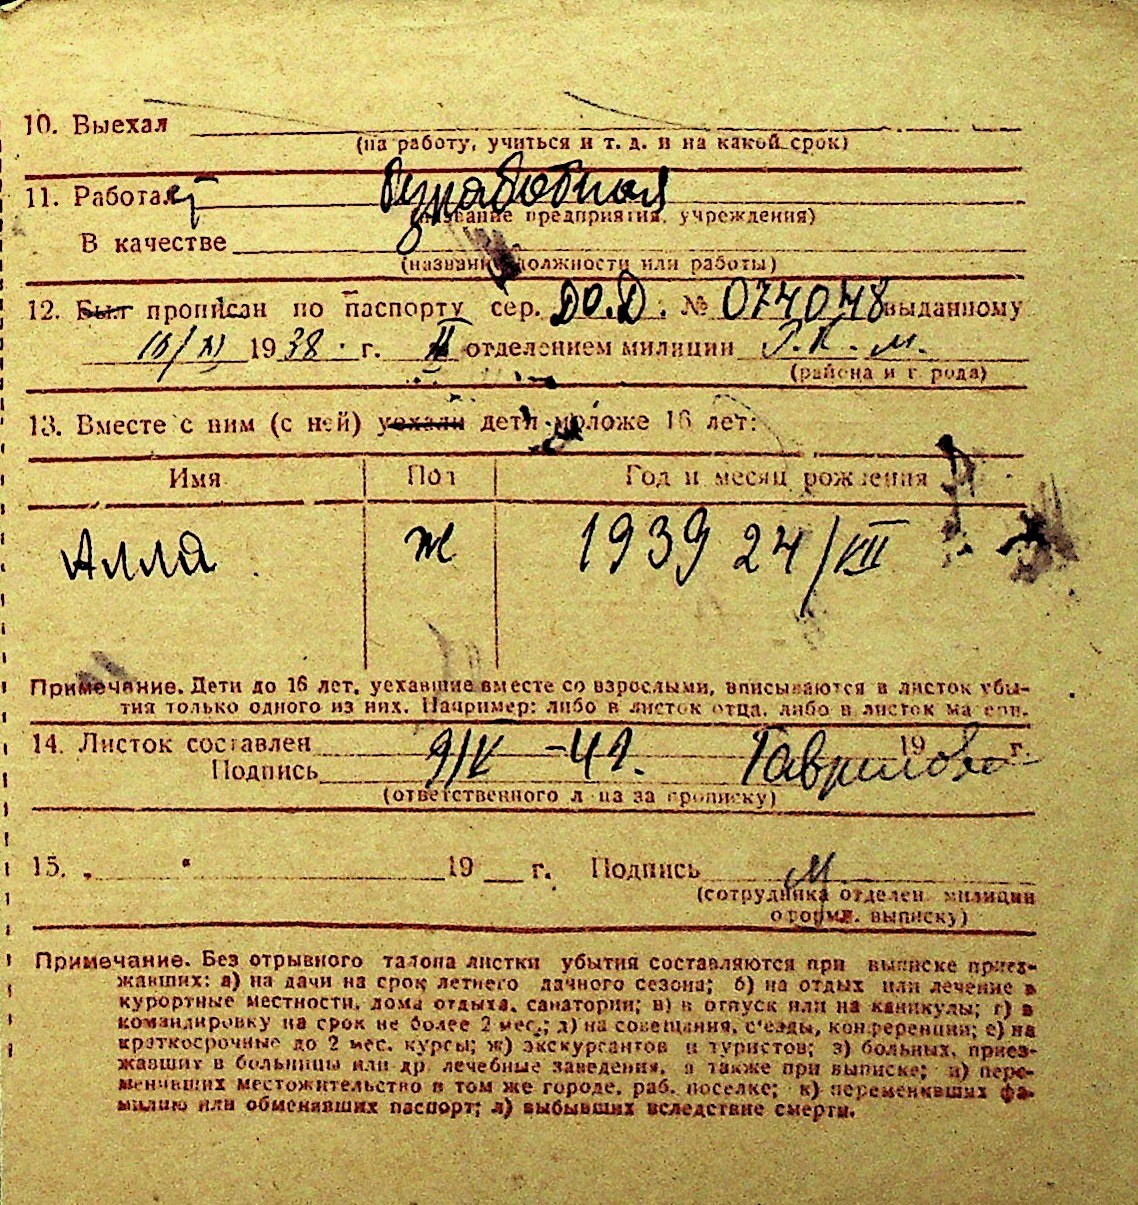 10. Выехал
(на работу, учиться и т. д. и на какой срок)
11. Работал
(название предприятия, учреждения)
В качестве
(название должности или работы)
12. Был прописан по паспорту сер. ДО.Д. № 074048 выданному
16/XI 1938 · г. II отделением милиции Р.К.М.
(района и города)
13. Вместе с ним (с ней) уехали дети моложе 16 лет:
Имя Пол Год и месяц рождения
Алла ж 1939 24/VII
Примечание. Дети до 16 лет, уехавшие вместе со взрослыми, вписываются в листок убы-
тия только одного из них. Например: либо в листок отца, либо в листок матери.
14. Листок составлен 9/V -41. 19 г.
Подпись Гаврилова
(ответственного лица за прописку)
15. „ “ 19 г. Подпись
(сотрудника отделен. милиции
оформл. выписку)
Примечание. Без отрывного талона листки убытия составляются при выписке приез-
жавших: а) на дачи на срок летнего дачного сезона; б) на отдых или лечение в
курортные местности, дома отдыха, санатории; в) в отпуск или на каникулы; г) в
командировку на срок не более 2 мес.; д) на совещания, с'езды, конференции; е) на
краткосрочные до 2 мес. курсы; ж) экскурсантов и туристов; з) больных, приез-
жавших в больницы или др. лечебные заведения, а также при выписке; и) пере-
менивших местожительство в том же городе, раб. поселке; к) переменивших фа-
милию или обменявших паспорт; л) выбывших вследствие смерти.